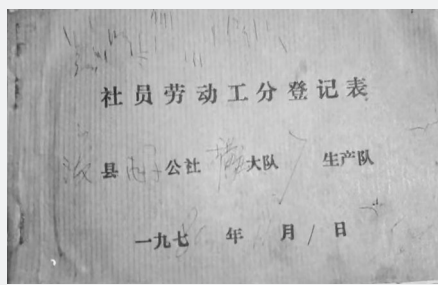 社员劳动工分登记表
县 公社 大队 生产队
一九七 年 月 日